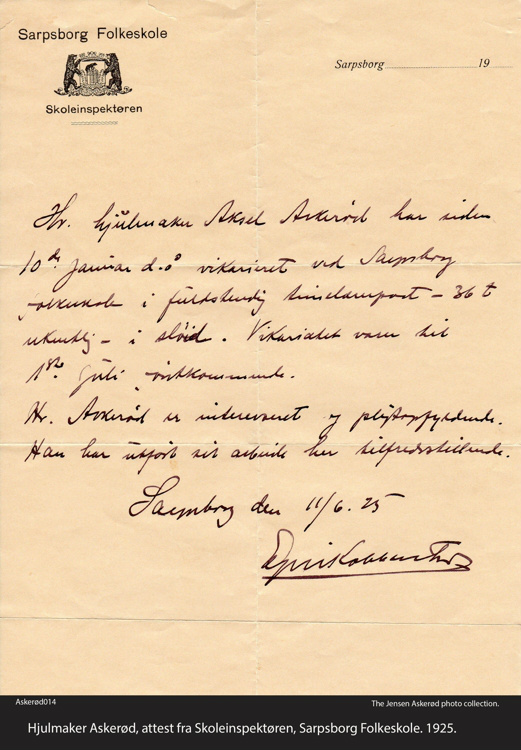 Sarpsborg Folkeskole
Skoleinspektøren
Sarpsborg 19
Hr. hjulmaker Aksel Askerød har siden
10de januar d.å vikarieret ved Sarpsborg
folkeskole i fuldstendig timelærerpost – 36 t
ukentlig – i sløid. Vikariatet varer til
1ste juli førstkommende.
Hr. Askerød er interesseret og pligtopfyldende.
Han har utført sit arbeide her tilfredsstillende.
Sarpsborg den 11/6. 25
Askerød014
The Jensen Askerød photo collection.
Hjulmaker Askerød, attest fra Skoleinspektøren, Sarpsborg Folkeskole. 1925.